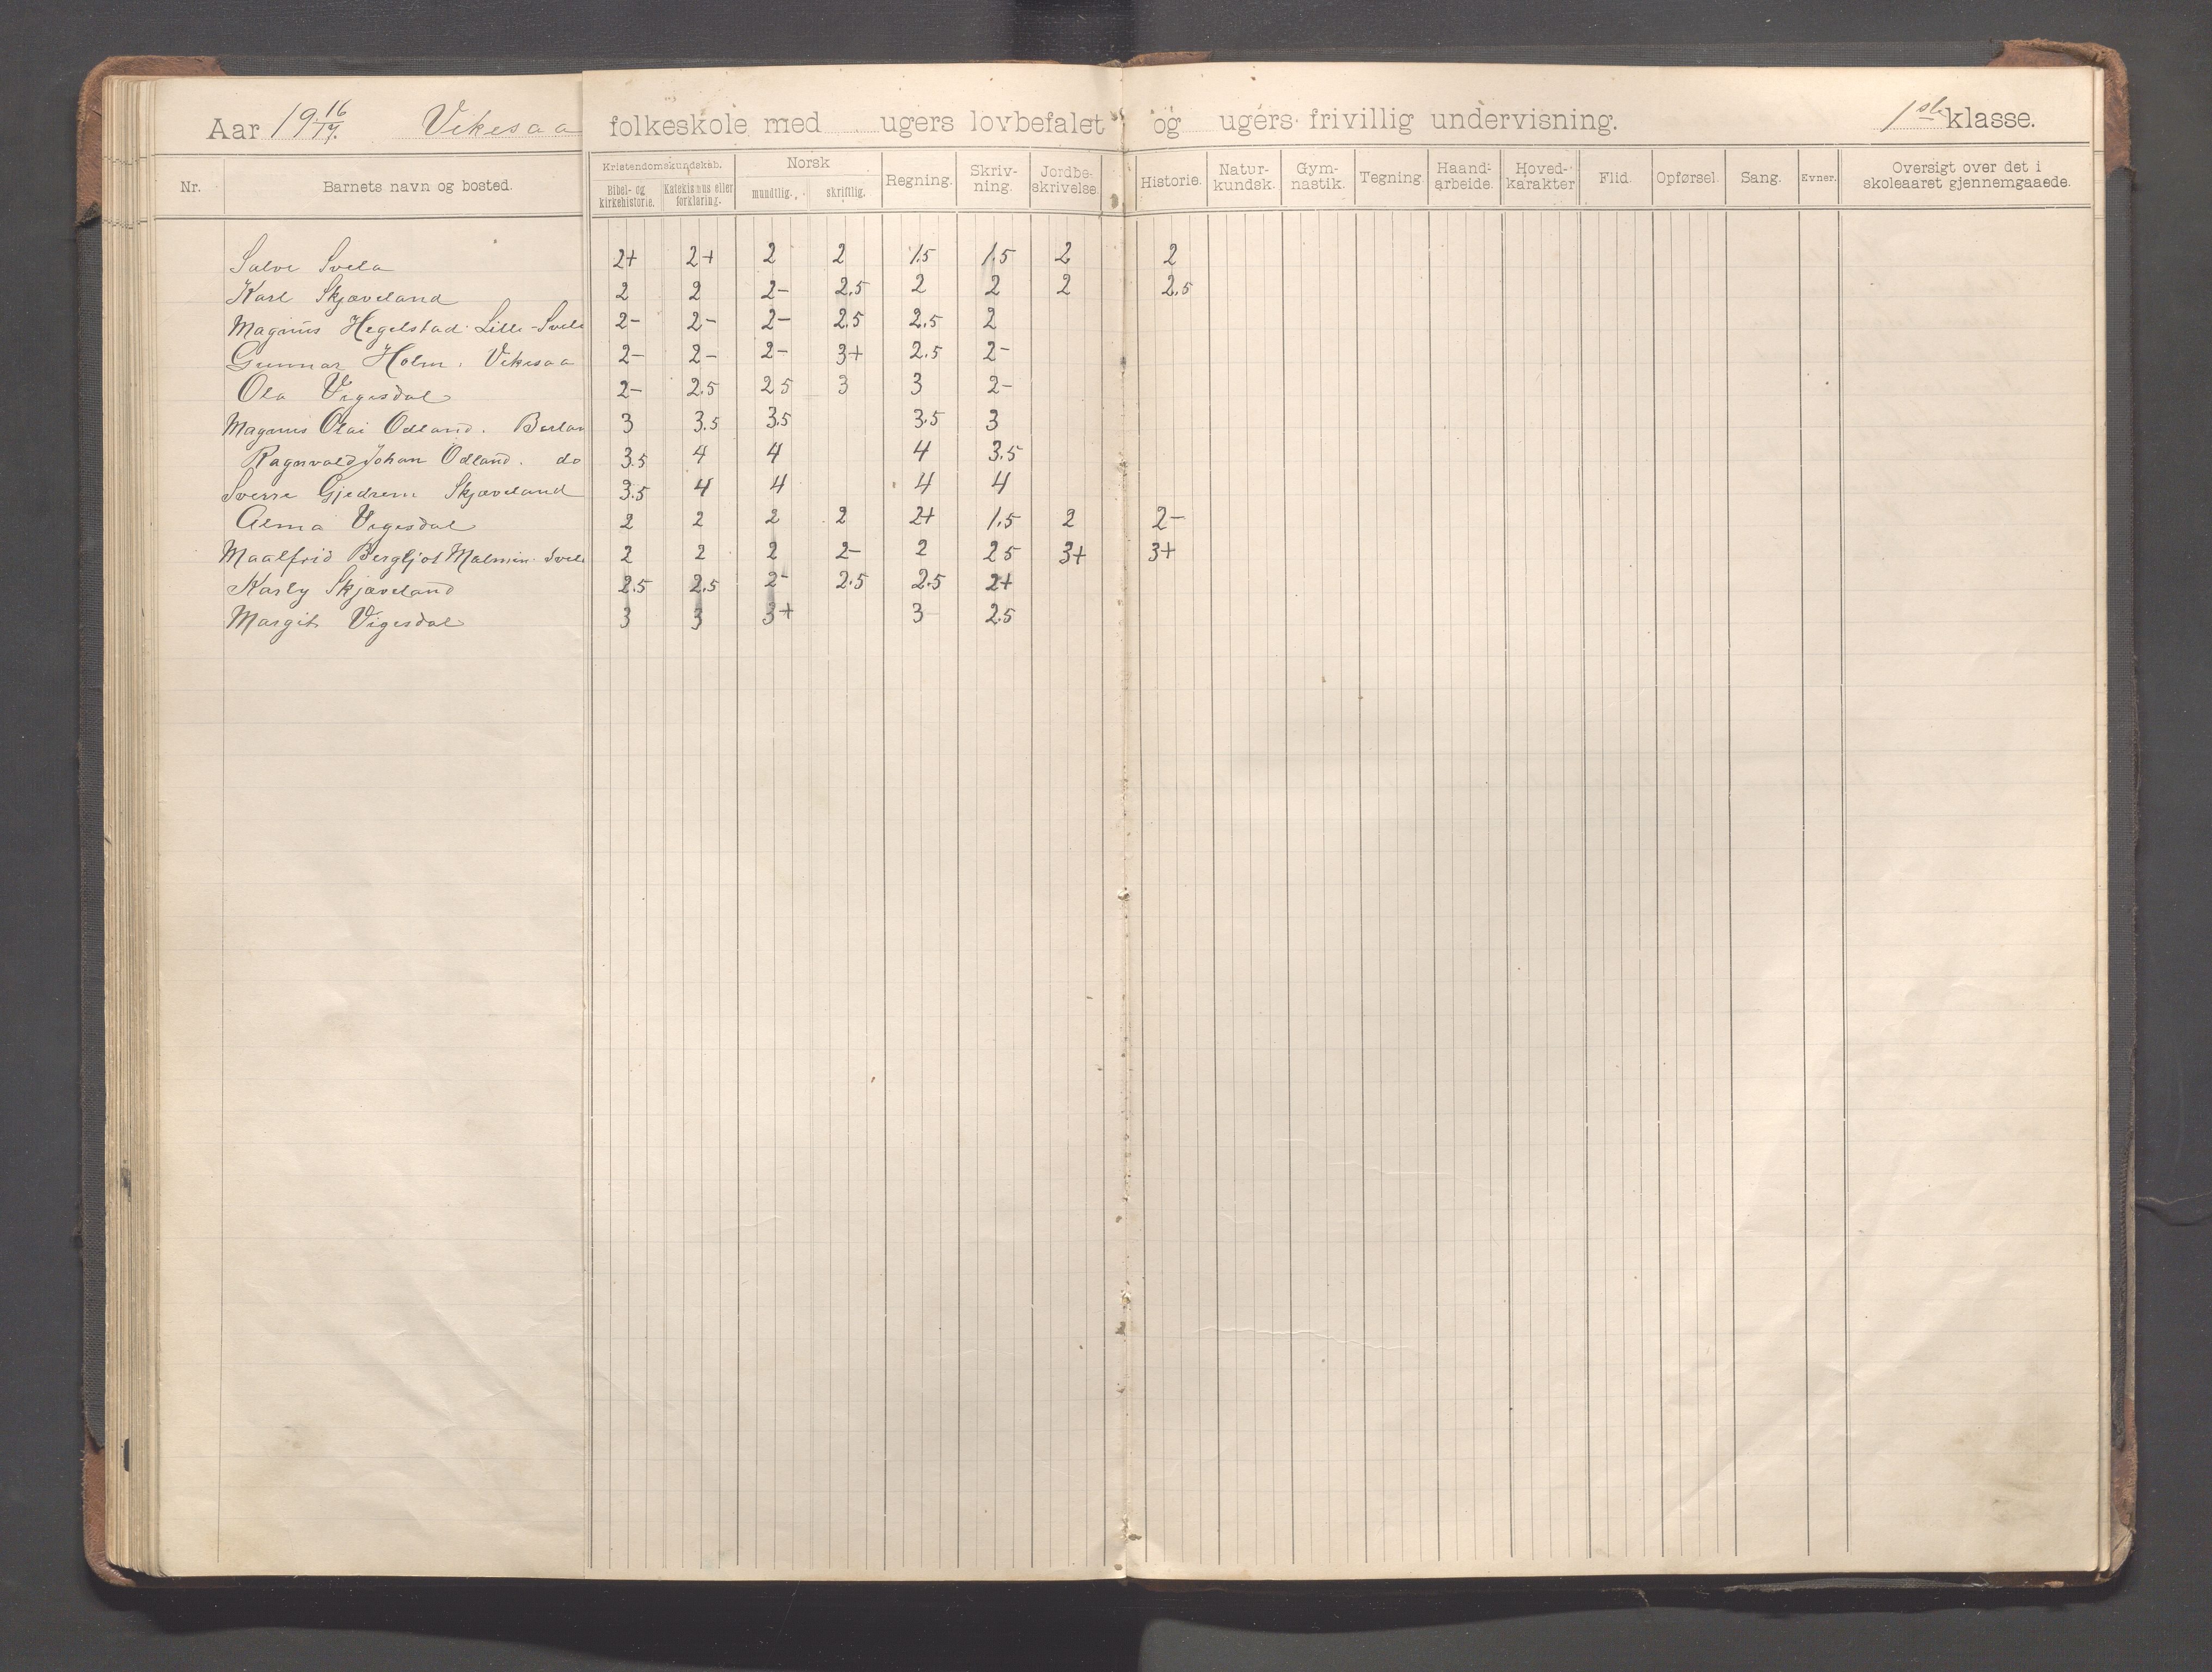 Aar 19 16/17. Vikesaa folkeskole med ugers lovbefalet og ugers frivillig undervisning. 1ste klasse.
Nr. Barnets navn og bosted. Kristendomskundskab. Bibel- og kirkehistorie. Katekismus eller forklaring. Norsk mundtlig. skriftlig. Regning. Skriv-ning. Jordbe-skrivelse. Historie. Natur-kundsk. Gym-nastik. Tegning Haand-arbeide. Hoved-karakter Flid. Opførsel. Sang. Evner. Oversigt over det i skoleaaret gjennemgaaede.
Salve Svela 2+ 2+ 2 2 1.5 1.5 2 2
Karl Skjæveland 2 2 2- 2.5 2 2 2 2.5
Magnus Hegelstad. Lille-Svela 2- 2- 2- 2.5 2.5 2
Gunnar Holm. Vikesaa 2- 2- 2- 3+ 2.5 2-
Ola Vigesdal 2- 2.5 2 5 3 3 2-
Magnus Olai Odland. Berlan 3 3.5 3.5 3.5 3
Ragnvald Johan Odland. do 3.5 4 4 4 3.5
Sverre Gjedrem Skjæveland 3.5 4 4 4 4
Alma Vigesdal 2 2 2 2 2+ 1.5 2 2-
Maalfrid Bergljot Malmin. Svela 2 2 2 2- 2 2 5 3+ 3+
Karly Skjæveland 2.5 2.5 2- 2.5 2.5 2+
Margit Vigesdal 3 3 3+ 3 2.5